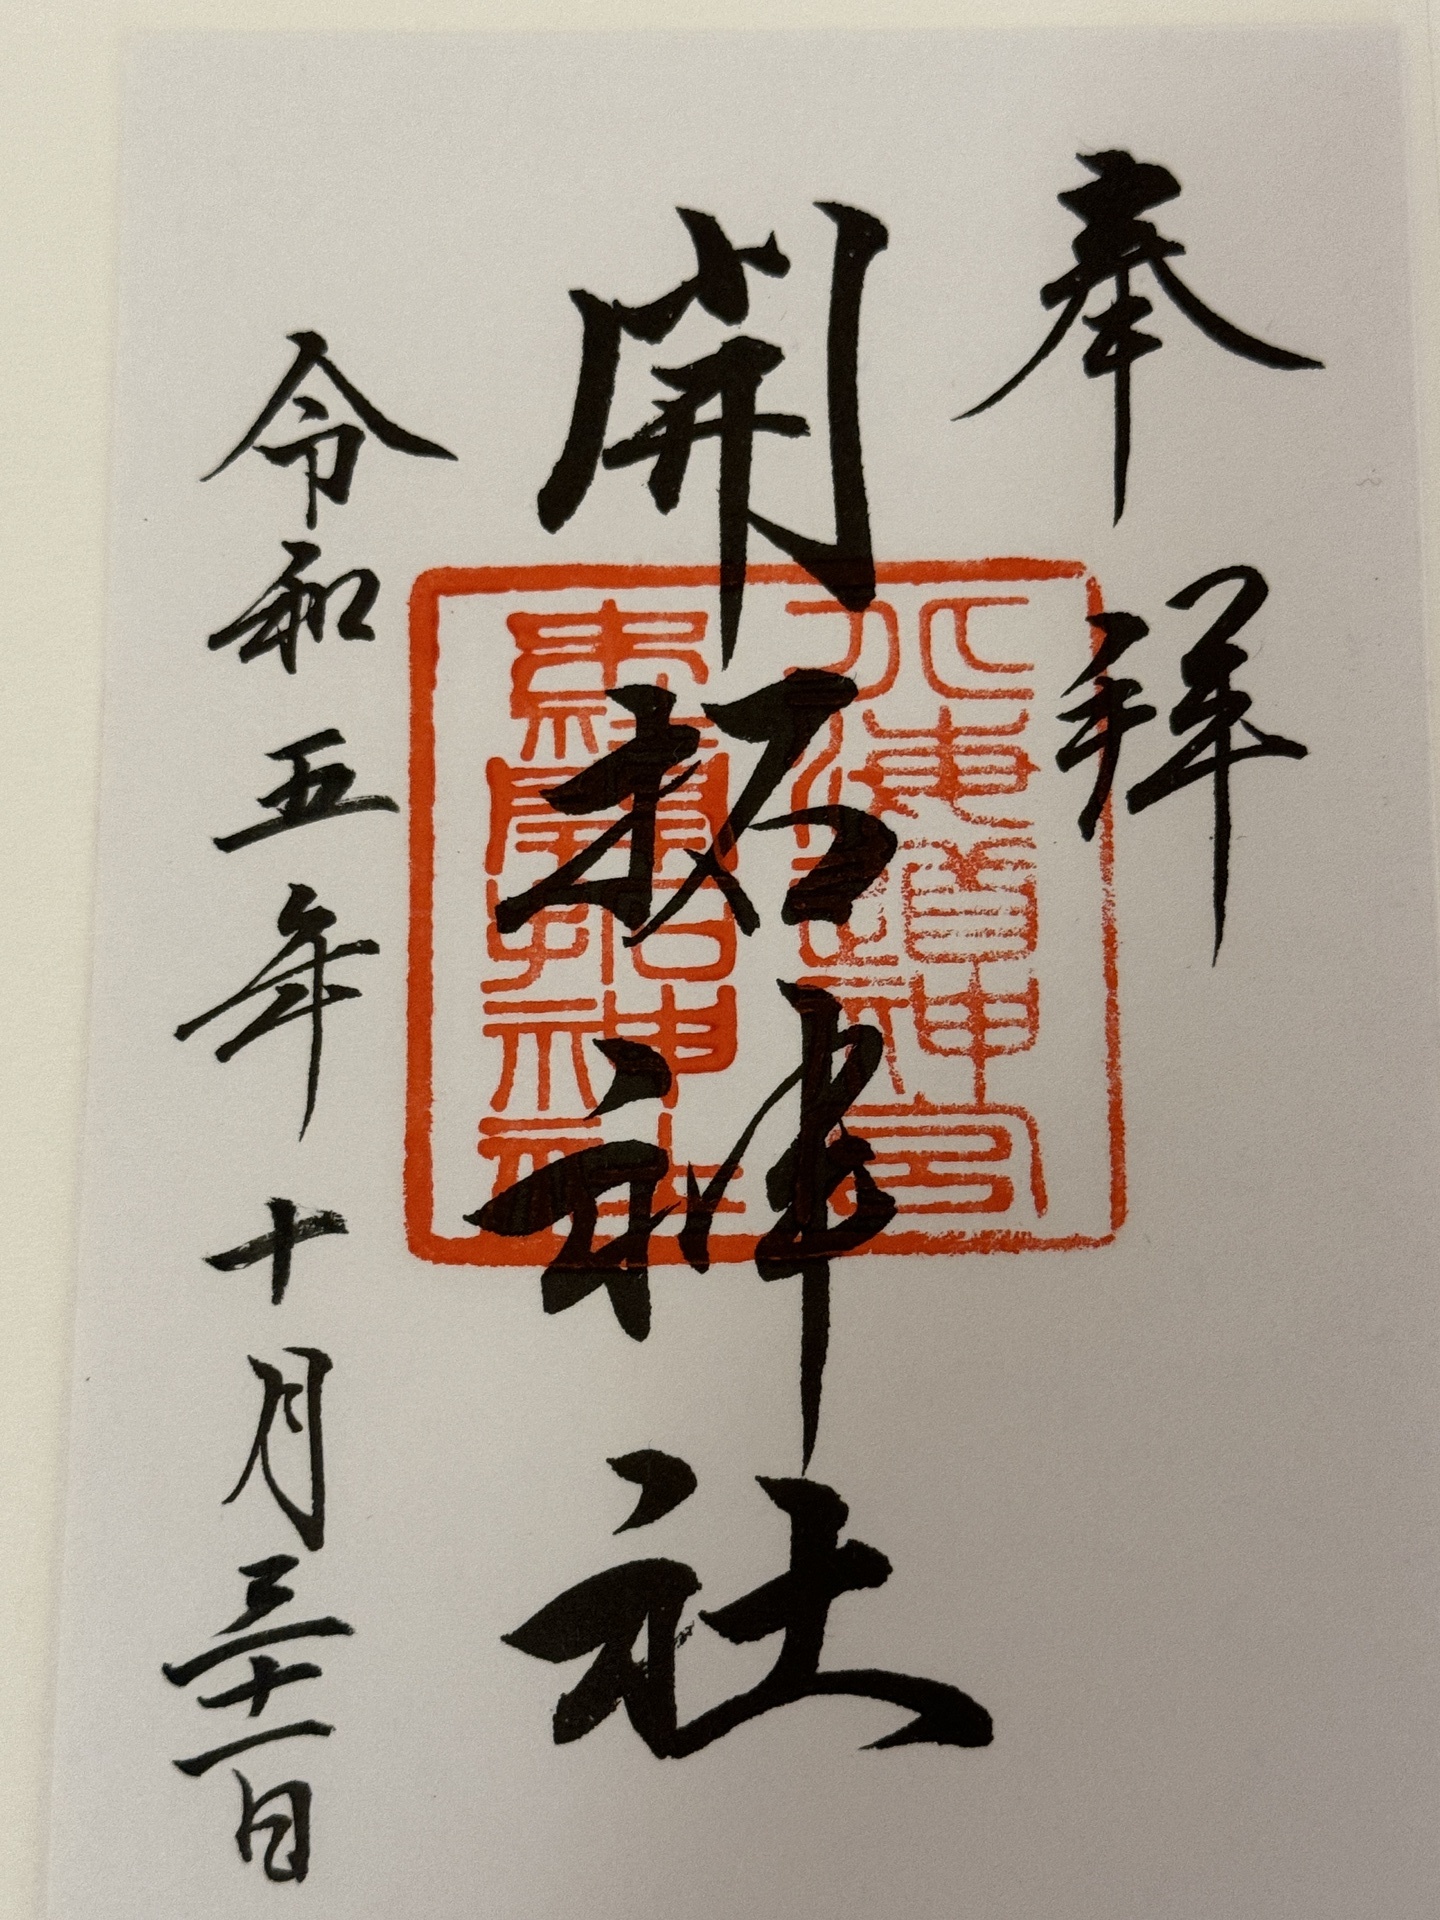 奉拝
開拓神社
北海道神宮
末廣開拓神社
令和五年十月三十一日